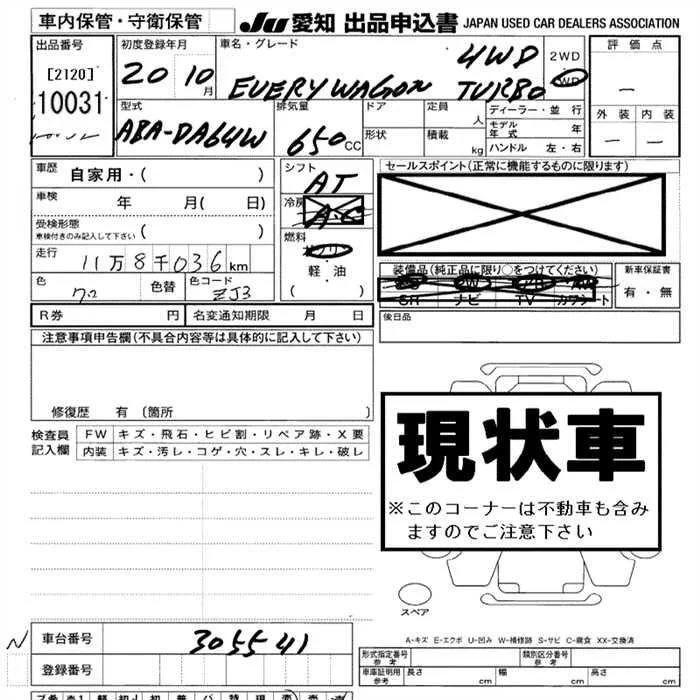 車内保管・守衛保管
JU 愛知 出品申込書 JAPAN USED CAR DEALERS ASSOCIATION
出品番号
[2120]
10031
初度登録年月
20 10月
車名・グレード
EVERY WAGON 4WD TURBO
2WD
・
4WD
評価点
—
外装 内装
— —
型式
ABA-DA64W
排気量
650CC
ドア
形状
定員 人
積載 kg
ディーラー・並行
モデル年式 年
ハンドル 左・右
車歴 自家用・( )
車検 年 月( 日)
受検形態
車検付きのみ記入して下さい ( )
走行 11万8千036km
色 色替 色コード
ZJ3
シフト
AT
冷房
A・C
燃料
ガソリン
・
軽・油
( )
セールスポイント(正常に機能するものに限ります)
装備品(純正品に限り○をつけてください)
SR ナビ TV カワシート
新車保証書
有・無
後日品
R券 円 名変通知期限 月 日
注意事項申告欄(不具合内容等は具体的に記入して下さい)
修復歴 有 (箇所 )
検査員記入欄
FW キズ・飛石・ヒビ割・リペア跡・X要
内装 キズ・汚レ・コゲ・穴・スレ・キレ・破レ
現状車
※このコーナーは不動車も含み
ますのでご注意下さい
スペア
A-キズ E-エクボ U-凹み W-補修跡 S-サビ C-腐食 XX-交換済
N 車台番号 305541
登録番号
形式指定番号
参考
類別区分番号
参考
車庫証明用
参考
長さ cm 幅 cm 高さ cm